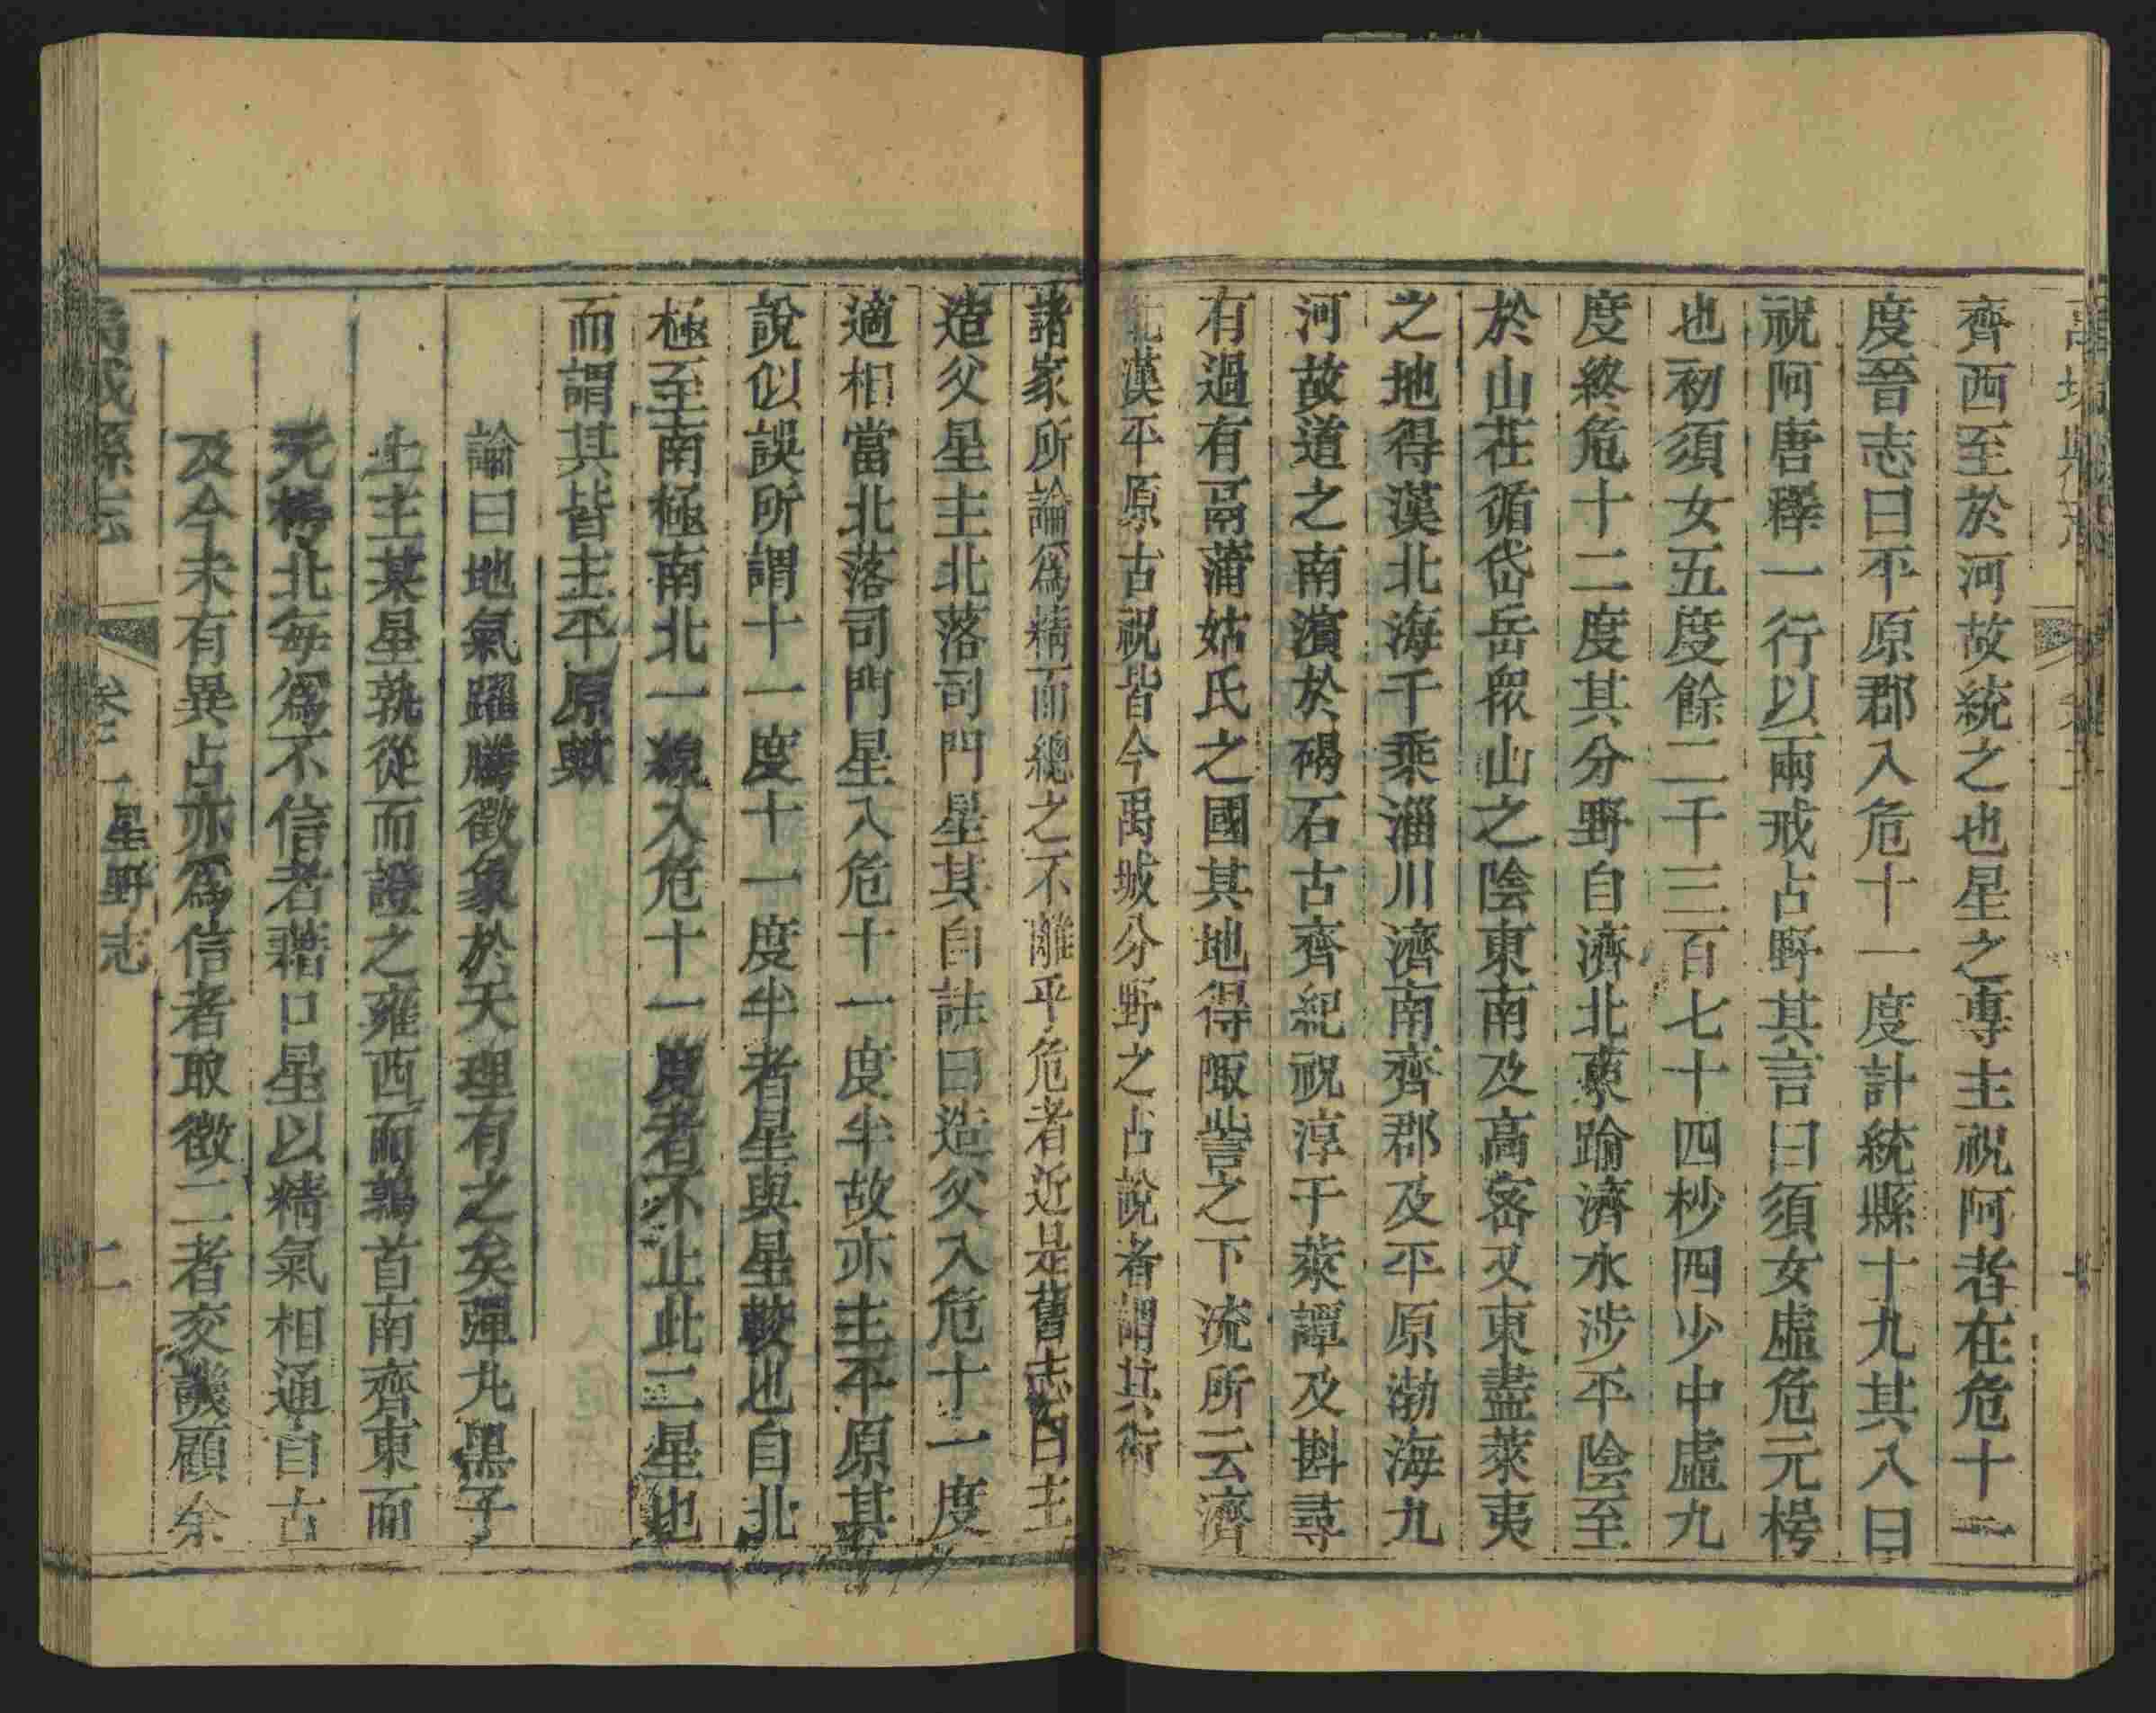 齊西至於河故統之也星之專主祝阿者在危十一
度晉志曰平原郡入危十一度計統縣十九其入曰
祝阿唐釋一行以兩戒占野其言曰須女虛危元枵
也初須女五度餘二千三百七十四杪四少中虛九
度終危十二度其分野自濟北東踰濟水涉平陰至
於山茌循岱岳眾山之陰東南及高密又東盡萊夷
之地得漢北海千乘淄川濟南齊郡及平原渤海九
河故道之南濵於碣石古齊紀祝淳于萊譚及斟尋
有過有鬲蒲姑氏之國其地得陬訾之下流所云濟
漢平原古祝皆今禹城分野之占說者謂其術
諸家所論爲精而總之不離乎危者近是舊志曰主
造父星主北落司門星其自註曰造父入危十一度
適相當北落司門星入危十一度半故亦主平原其
說似誤所謂十一度十一度半者星與星較也自北
極至南極南北一線入危十一度者不止此二星也
而謂其皆主平原歟
論曰地氣躍騰徵象於天理有之矣彈丸黑子
上主某星孰從而證之雍西而鶉首南齊東而
元枵北每爲不信者藉口星以精氣相通自古
及今未有異占亦爲信者取徵二者交譏顧余
禹城縣志
卷二
星野志
二